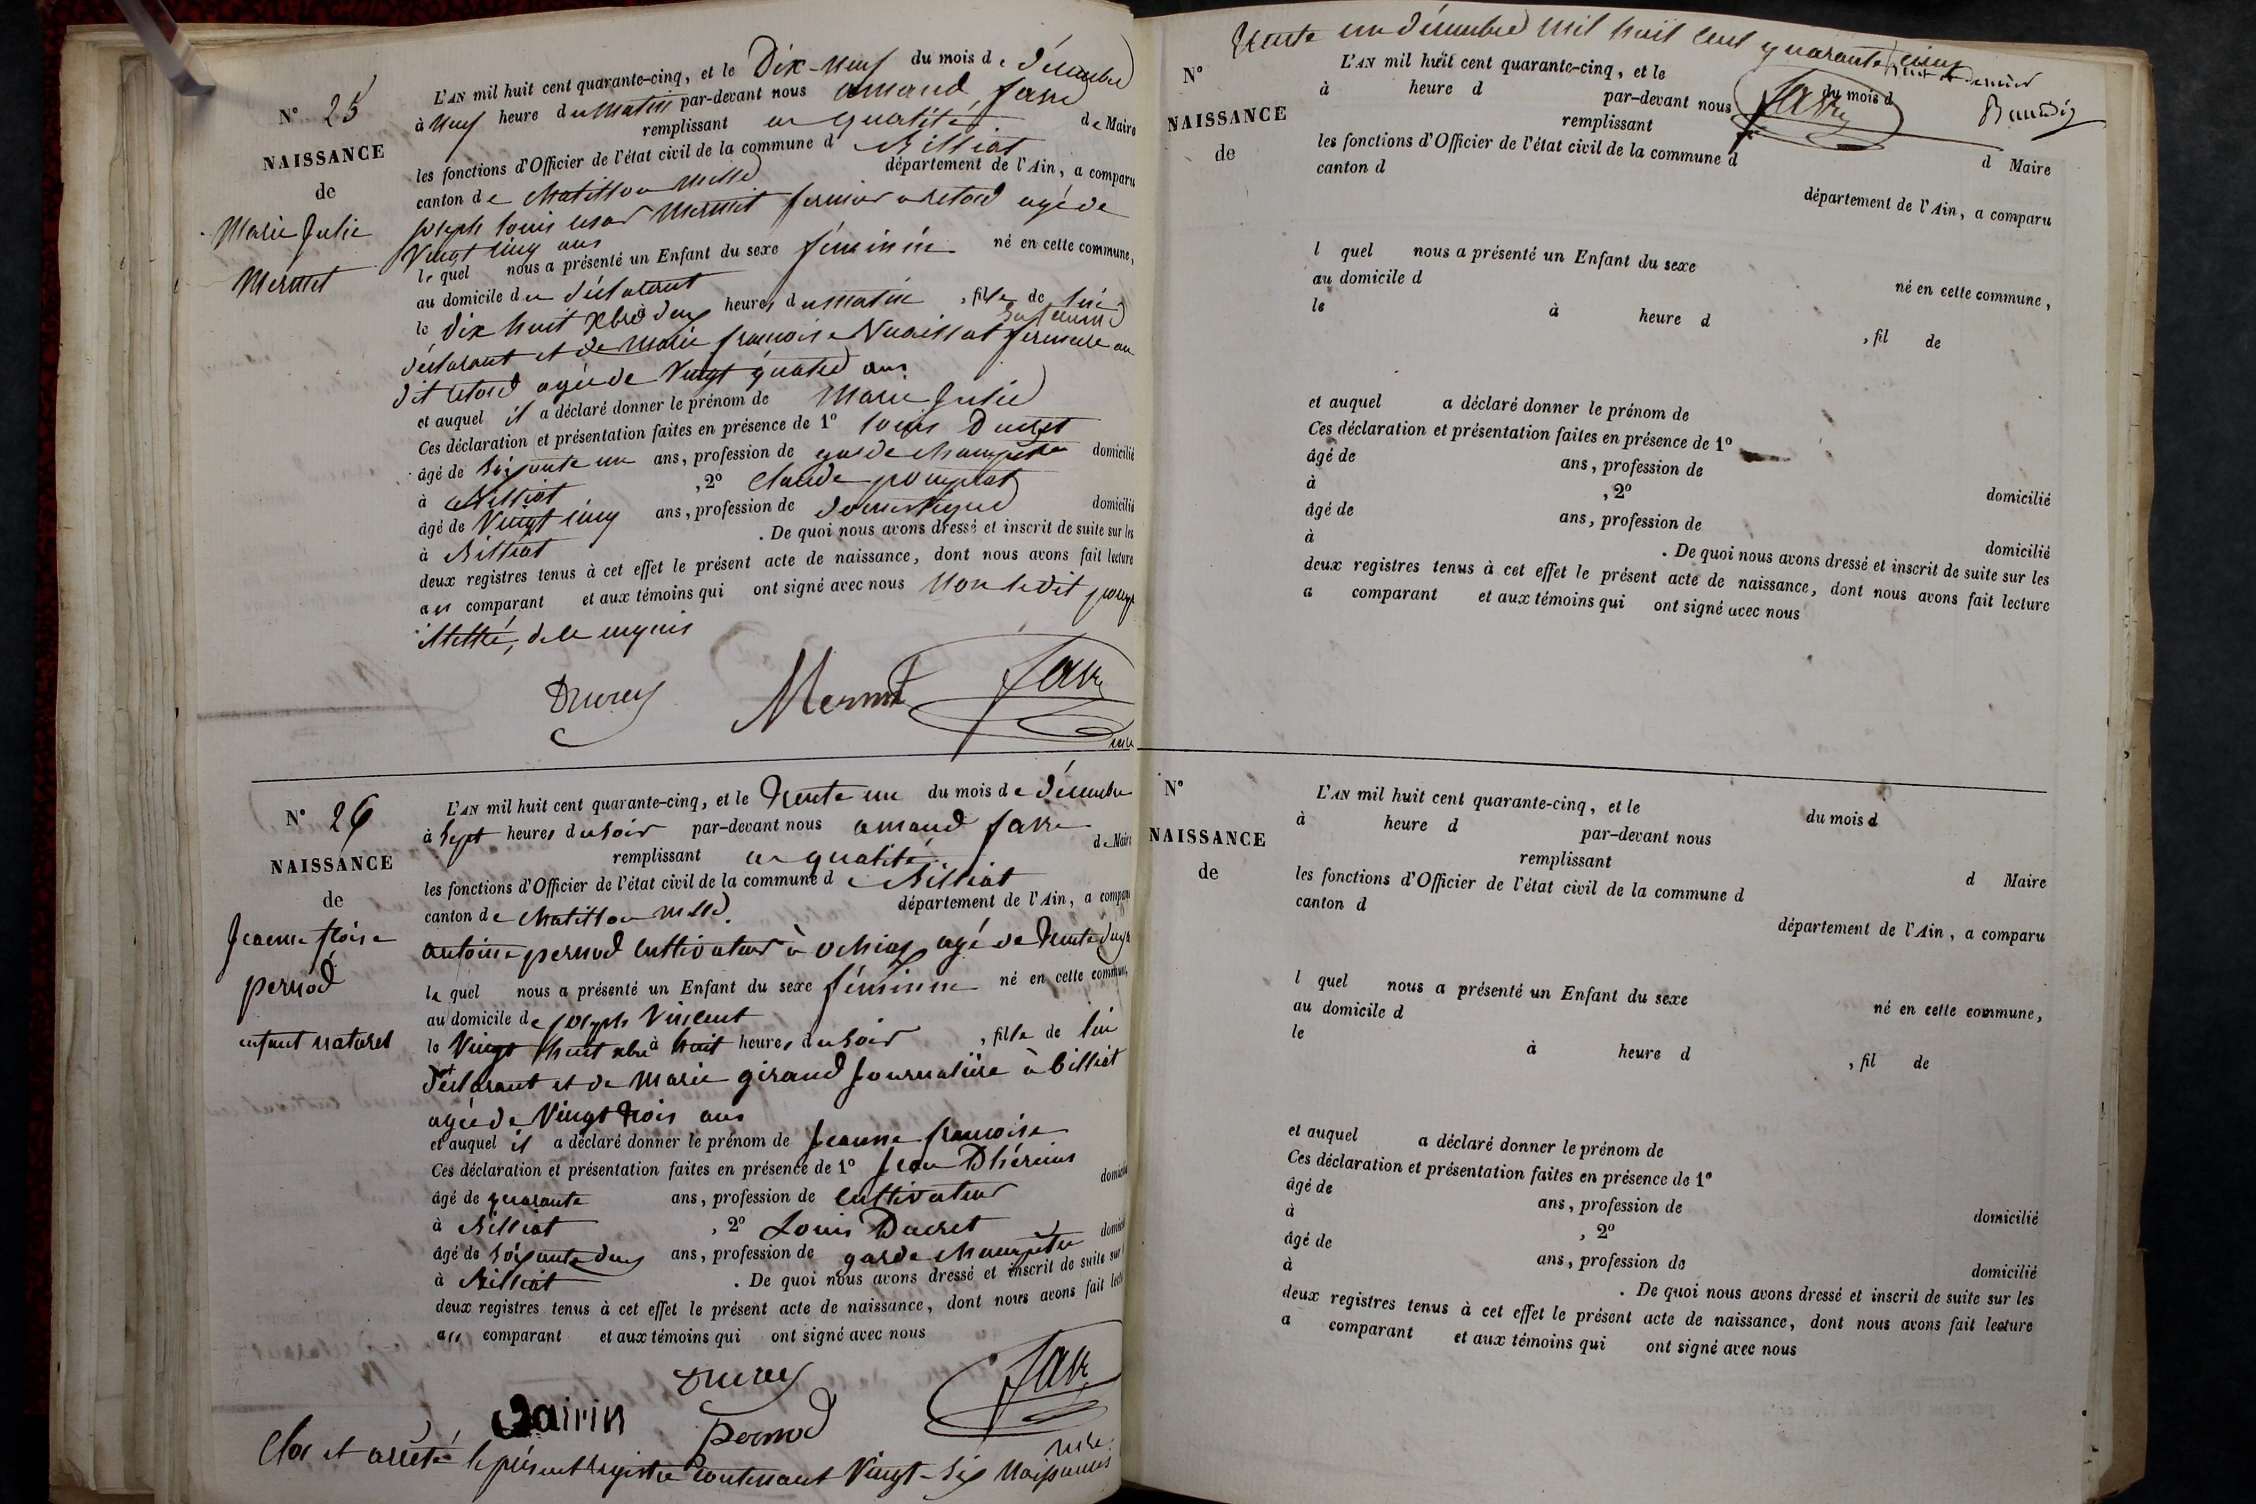 N° 25
NAISSANCE
de
Marie Julie
Mermet
L'AN mil huit cent quarante-cinq, et le Dix-neuf du mois de décembre
à neuf heure du matin par-devant nous amand favre
remplissant en qualité de Maire
les fonctions d'Officier de l'état civil de la commune d Billiat
canton de Chatillon département de l'Ain, a comparu
joseph louis Mermet fermier a retord agé de
Vingt cinq ans
le quel nous a présenté un Enfant du sexe féminin né en cette commune,
au domicile du déclarant
le dix huit xbre à deux heures du matin, fille de lui
déclarant et de Marie françoise fermière au
dit retord agée de Vingt quatre ans
et auquel il a déclaré donner le prénom de Marie Julie
Ces déclaration et présentation faites en présence de 1° louis Ducret
âgé de Soixante un ans, profession de garde champêtre domicilié
à Billiat, 2° Claude pompiat
âgé de Vingt cinq ans, profession de domestique domicilié
à Billiat. De quoi nous avons dressé et inscrit de suite sur les
deux registres tenus à cet effet le présent acte de naissance, dont nous avons fait lecture
au comparant et aux témoins qui ont signé avec nous non ledit pomp
illettré, de ce enquis
Ducret Mermet Favre
N° 26
NAISSANCE
de
Jeanne fçoise
pernod
enfant naturel
L'AN mil huit cent quarante-cinq, et le trente un du mois de décembre
à Sept heures du soir par-devant nous amand favre
remplissant en qualité de Maire
les fonctions d'Officier de l'état civil de la commune de Billiat
canton de Chatillon département de l'Ain, a comparu
antoine pernod cultivateur à ochiaz agé de trente deux
le quel nous a présenté un Enfant du sexe féminin né en cette commune,
au domicile de joseph Vincent
le Vingt huit xbre à huit heures du soir, fille de lui
déclarant et de Marie giraud Journalière à billiat
agée de Vingt trois ans
et auquel il a déclaré donner le prénom de Jeanne françoise
Ces déclaration et présentation faites en présence de 1° Jean
âgé de quarante ans, profession de cultivateur domicilié
à Billiat, 2° Louis Ducret
âgé de soixante deux ans, profession de garde champêtre domicilié
à Billiat. De quoi nous avons dressé et inscrit de suite sur
deux registres tenus à cet effet le présent acte de naissance, dont nous avons fait lecture
au comparant et aux témoins qui ont signé avec nous
Ducret Favre
pernod
Clos et arrêté le présent registre contenant Vingt-six Naissances
trente un décembre mil huit cent quarante cinq
Favre
N°
NAISSANCE
de
L'AN mil huit cent quarante-cinq, et le du mois d
à heure d par-devant nous
remplissant d Maire
les fonctions d'Officier de l'état civil de la commune d
canton d département de l'Ain, a comparu
l quel nous a présenté un Enfant du sexe né en cette commune,
au domicile d
le à heure d, fil de
et auquel a déclaré donner le prénom de
Ces déclaration et présentation faites en présence de 1°
âgé de ans, profession de domicilié
à, 2°
âgé de ans, profession de domicilié
à. De quoi nous avons dressé et inscrit de suite sur les
deux registres tenus à cet effet le présent acte de naissance, dont nous avons fait lecture
a comparant et aux témoins qui ont signé avec nous
N°
NAISSANCE
de
L'AN mil huit cent quarante-cinq, et le du mois d
à heure d par-devant nous
remplissant d Maire
les fonctions d'Officier de l'état civil de la commune d
canton d département de l'Ain, a comparu
l quel nous a présenté un Enfant du sexe né en cette commune,
au domicile d
le à heure d, fil de
et auquel a déclaré donner le prénom de
Ces déclaration et présentation faites en présence de 1°
âgé de ans, profession de domicilié
à, 2°
âgé de ans, profession de domicilié
à. De quoi nous avons dressé et inscrit de suite sur les
deux registres tenus à cet effet le présent acte de naissance, dont nous avons fait lecture
a comparant et aux témoins qui ont signé avec nous